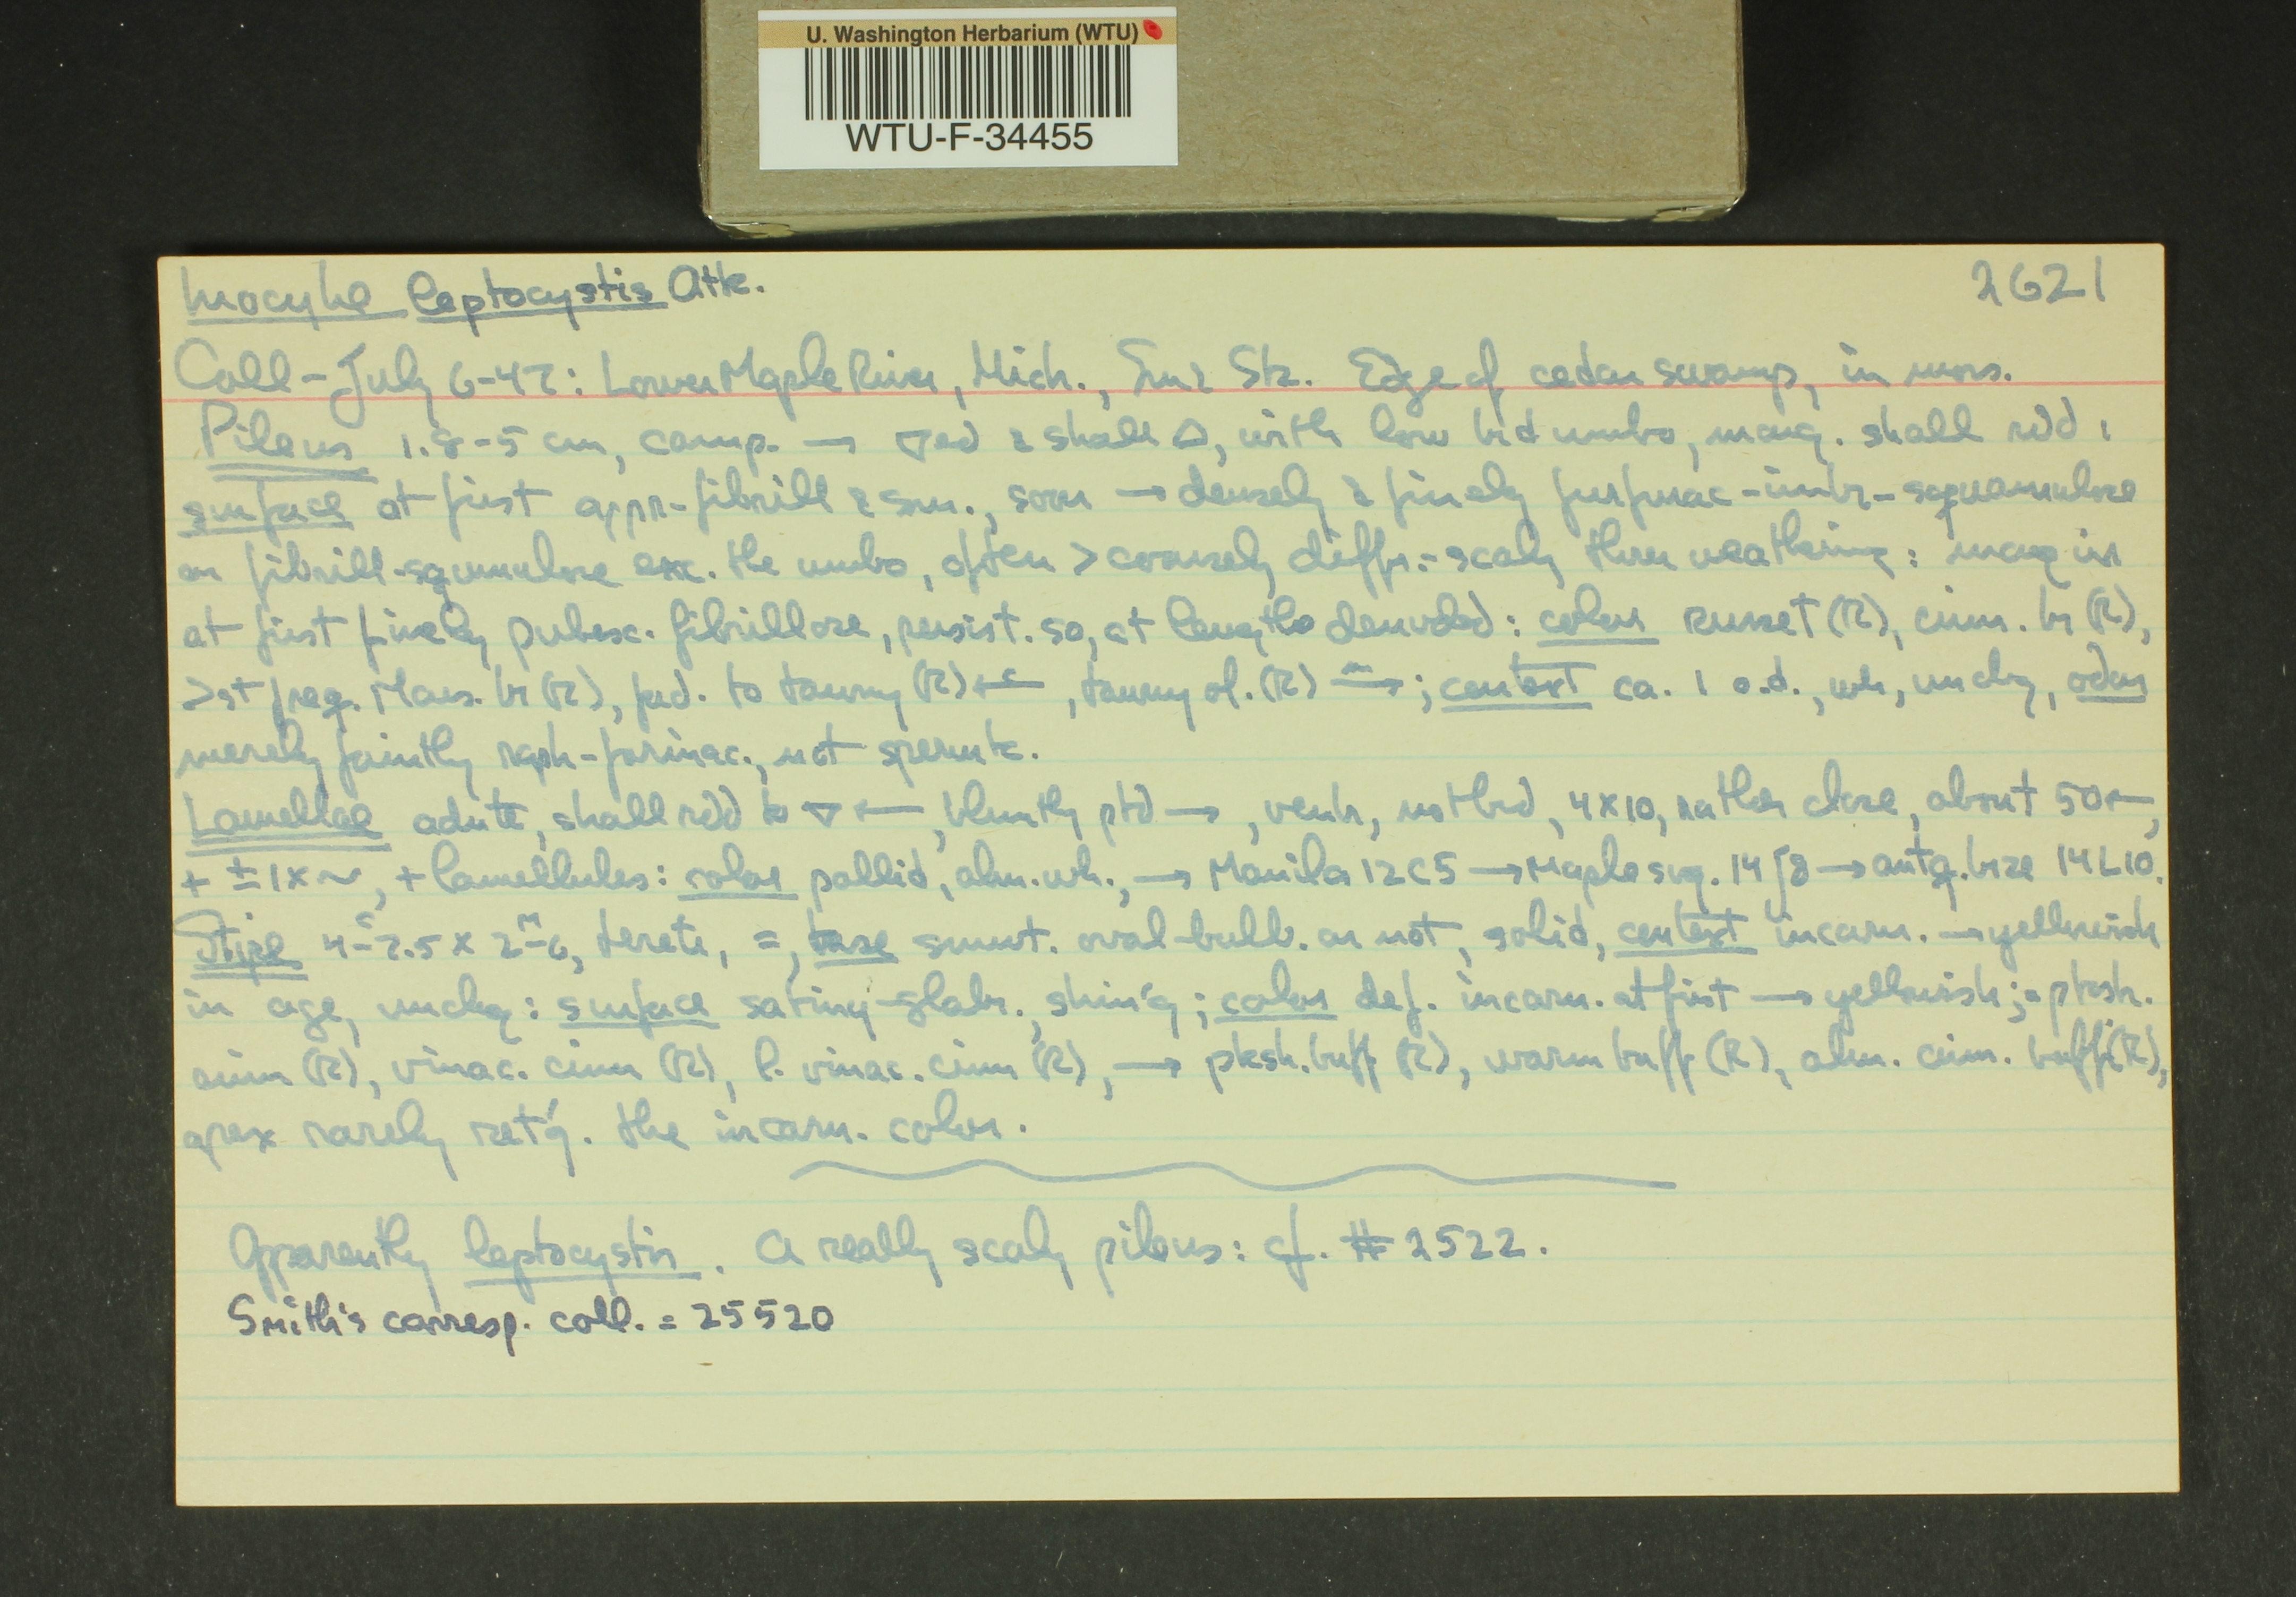 U. Washington Herbarium (WTU)
WTU-F-34455
Inocybe leptocystis Atk. 2621
Coll - July 6-47: Lower Maple River, Mich., Sm & Stz. Edge of cedar swamp, in moss.
Pileus 1.8-5 cm, camp. → ▽ed & shall △, with low brd umbo, marg. shall rdd;
surface at first appr-fibrill & sm., soon → densely & finely furfurac-imbr-squamulose
or fibrill-squamulose exc. the umbo, often > coarsely diffr.-scaly thru weathering: marg in
at first finely pubesc. fibrillose, persist. so, at length denuded: color russet (R), cinn. br (R),
>st freq. Mars. br (R), fad. to tawny (R) ←, tawny ol. (R) →; context ca. 1 o.d., wh, unchg, odor
merely faintly raph-farinac., not spermtc.
Lamellae adnte, shall rdd to ▽ ←, bluntly ptd →, ventr, not brd, 4x10, rather close, about 50←,
+ ± 1x~, + lamellules: color pallid, alm. wh., → Manila 12C5 → Maple sug. 14J8 → antq. brze 14L10.
Stipe 4-7.5 x 2-6, terete, =, base smwt. oval-bulb. or not, solid, context incarn. → yellowish
in age, unchg: surface satiny-glabr., shin'g; color def. incarn. at first → yellowish; = pksh.
cinn (R), vinac. cinn (R), l. vinac. cinn (R), → pksh. buff (R), warm buff (R), alm. cinn. buff (R),
apex rarely ret'g. the incarn. color.
Apparently leptocystis. A really scaly pileus: cf. #2522.
Smith's corresp. coll. = 25520